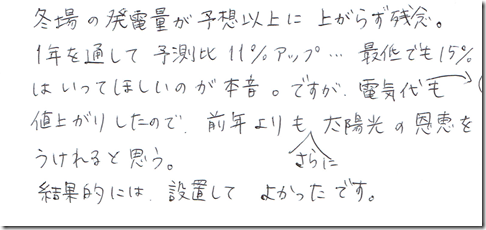 冬場の発電量が予想以上に上がらず残念。
1年を通して予測比11%アップ… 最低でも15%
はいってほしいのが本音。ですが、電気代も
値上がりしたので、前年よりもさらに太陽光の恩恵を
うけれると思う。
結果的には、設置してよかったです。